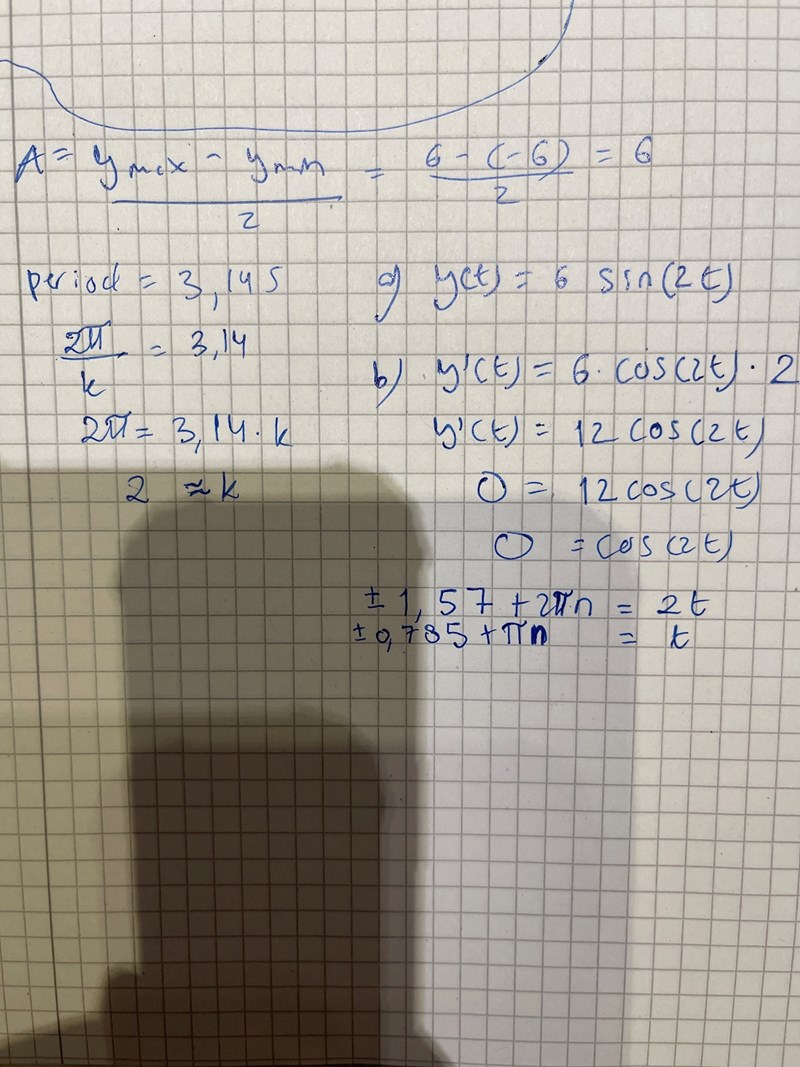 A = (y max - y min)/2 = (6 - (-6))/2 = 6
period = 3,14 s
2π/k = 3,14
2π = 3,14 · k
2 ≈ k
a) y(t) = 6 sin(2t)
b) y'(t) = 6 · cos(2t) · 2
y'(t) = 12 cos(2t)
0 = 12 cos(2t)
0 = cos(2t)
± 1,57 + 2πn = 2t
± 0,785 + πn = t